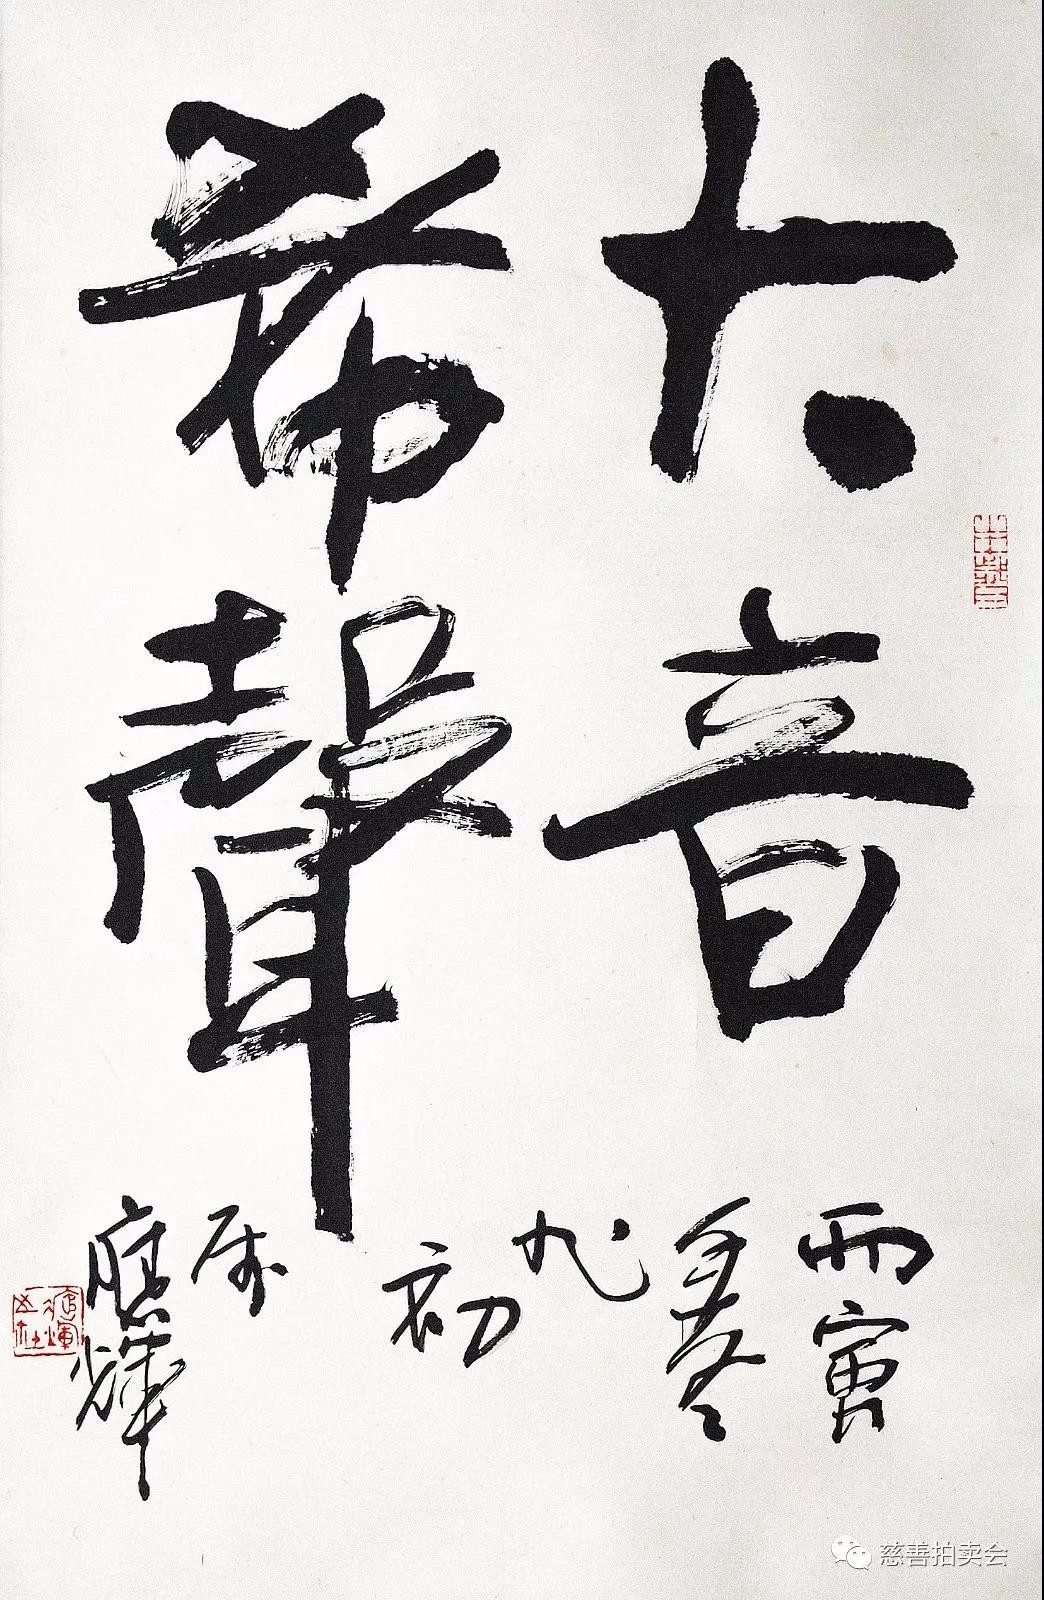 大音
希聲
丙寅
冬
九
初
應輝
慈善拍卖会